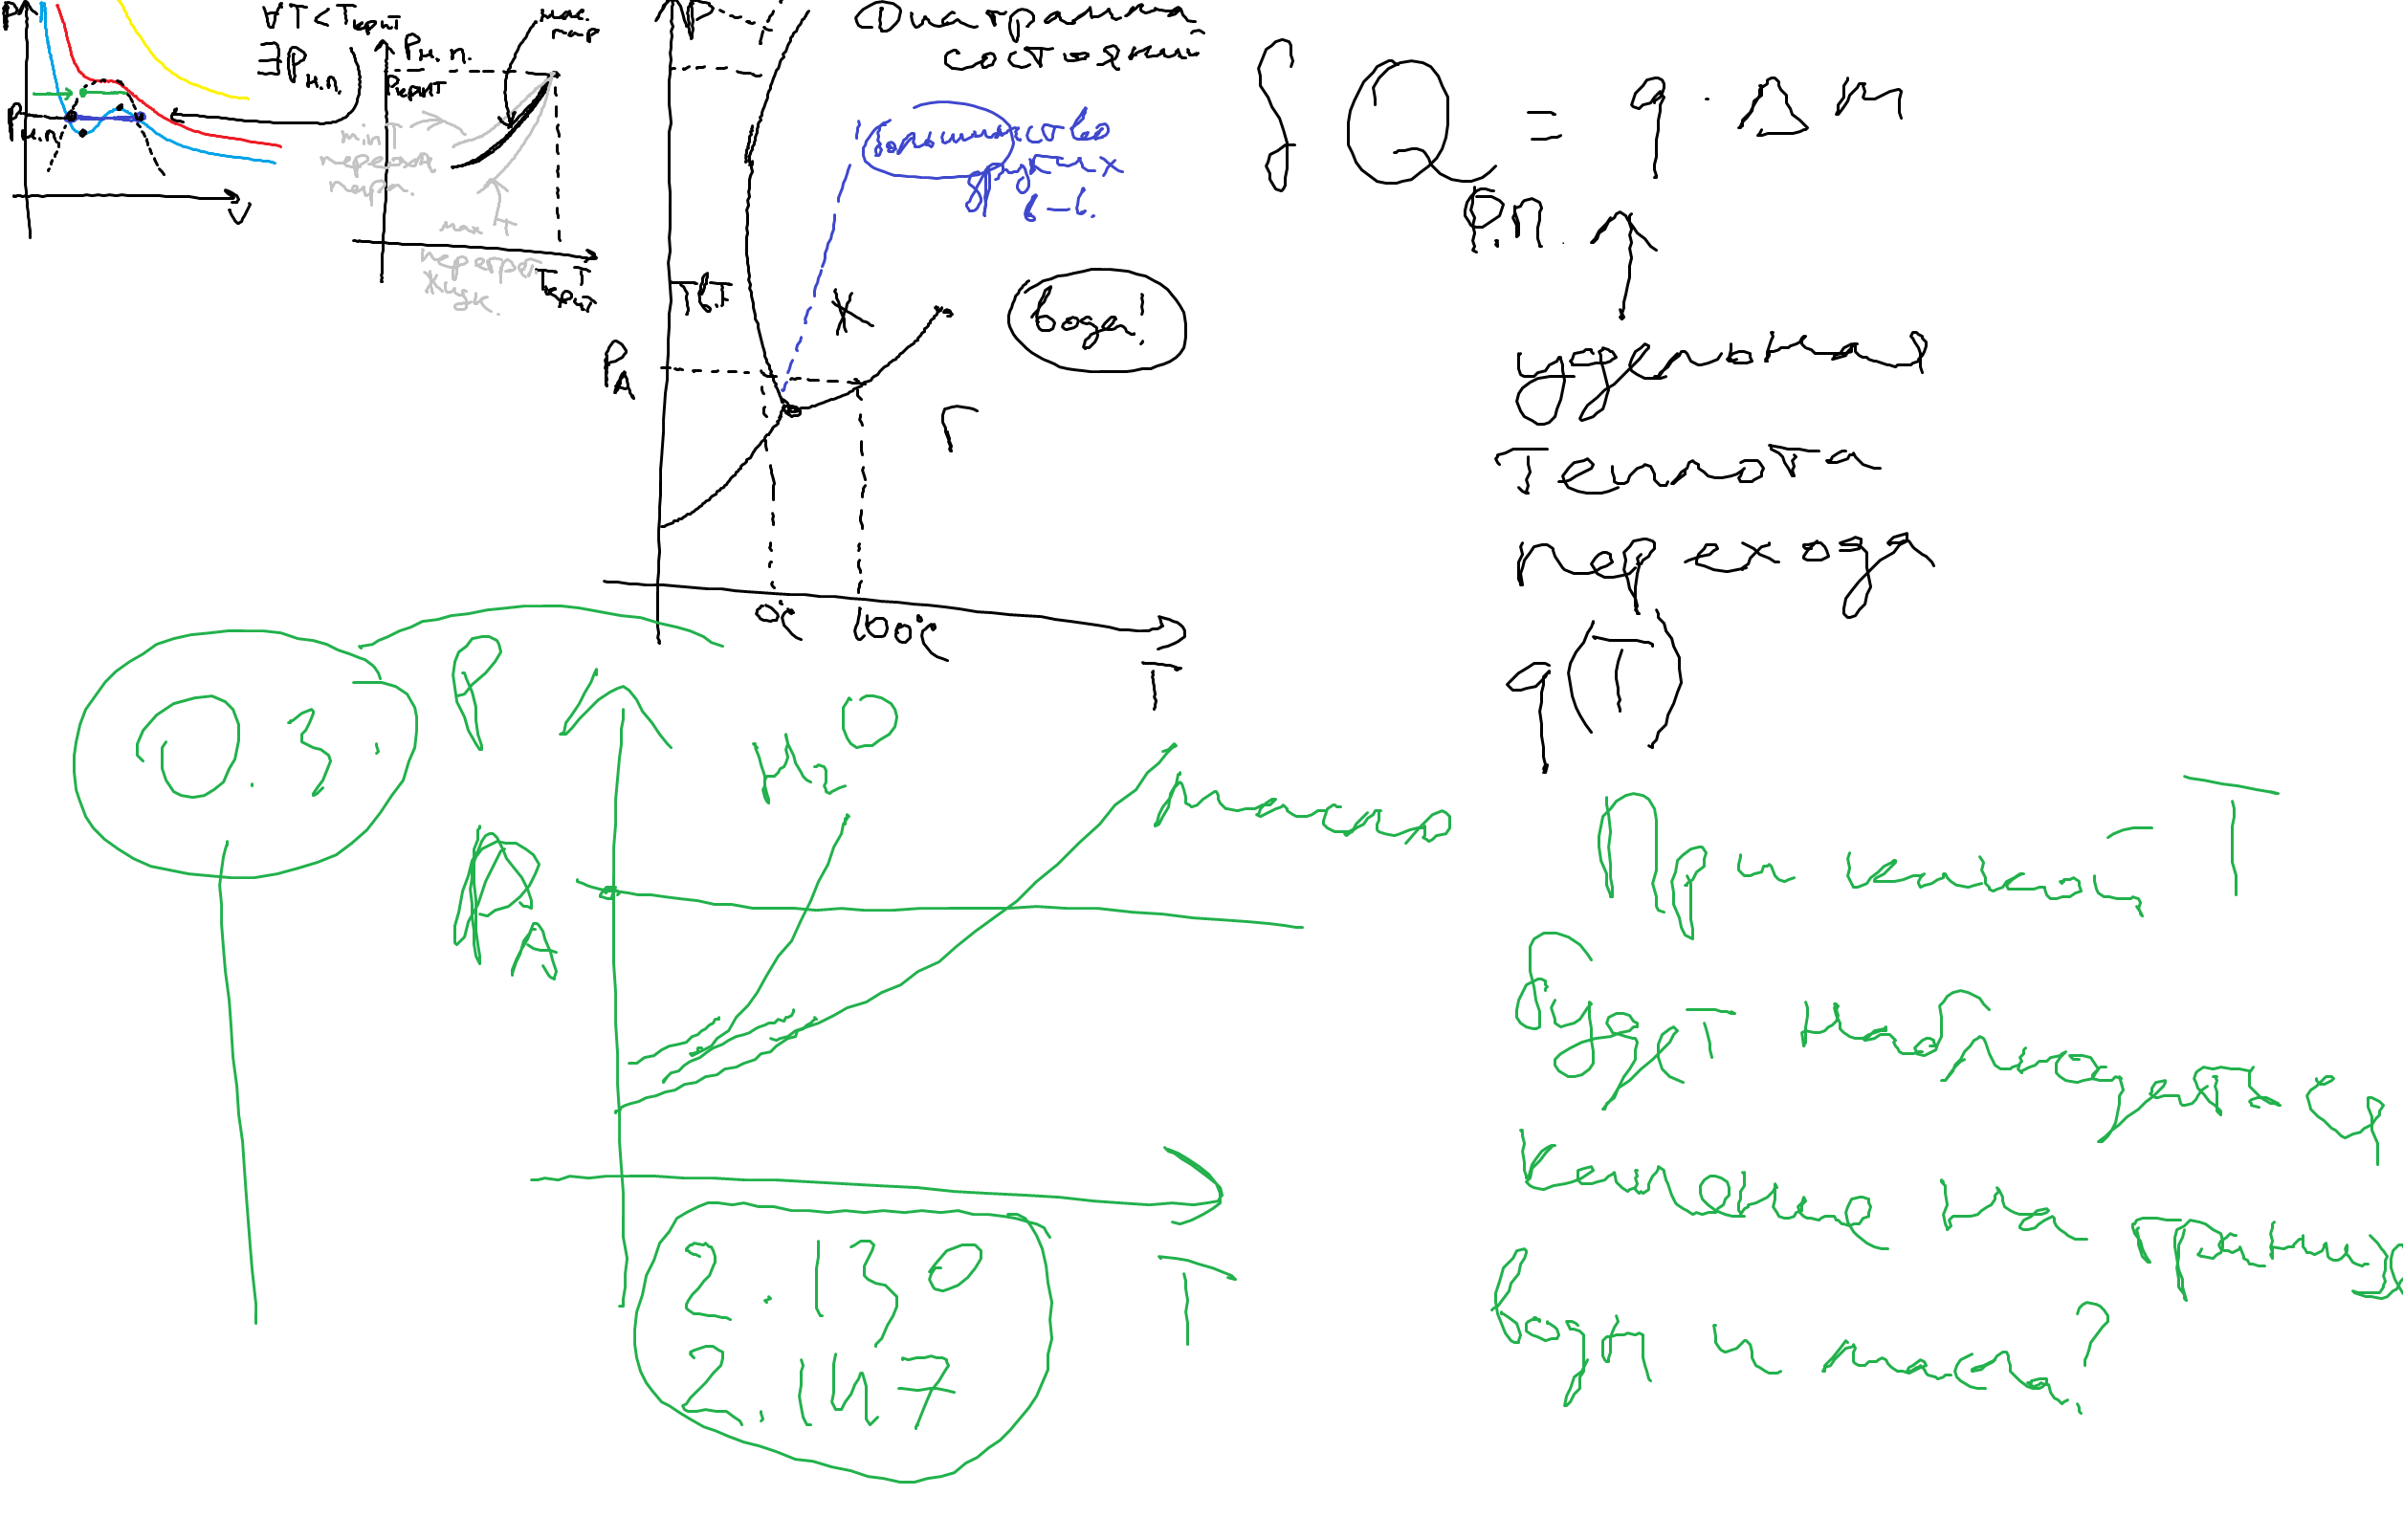 P
∀T<Tкрит
∃Pн.п.
Pн.п.
Pкрит
нас.
пар
Pн.п.
V
min T
перехл.
пара.
max T
перегр.
жидк.
Tкрит
P
Диаграмма
состояний
большинство
других
в-в.
Тв.т
Ж
Г
PА
вода!
0°C
100°C
T
δQ = q · Δm
Р.П.
удельная
теплота
перехода
q(T)
Д.З.
P
H₂O
масло
PА
T
2.130
2.147
При какой T
будет наблюдаться
кипение на границе
воды и масла?